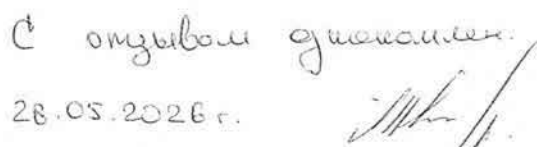 С отзывом ознакомлен.
28.05.2026 г.